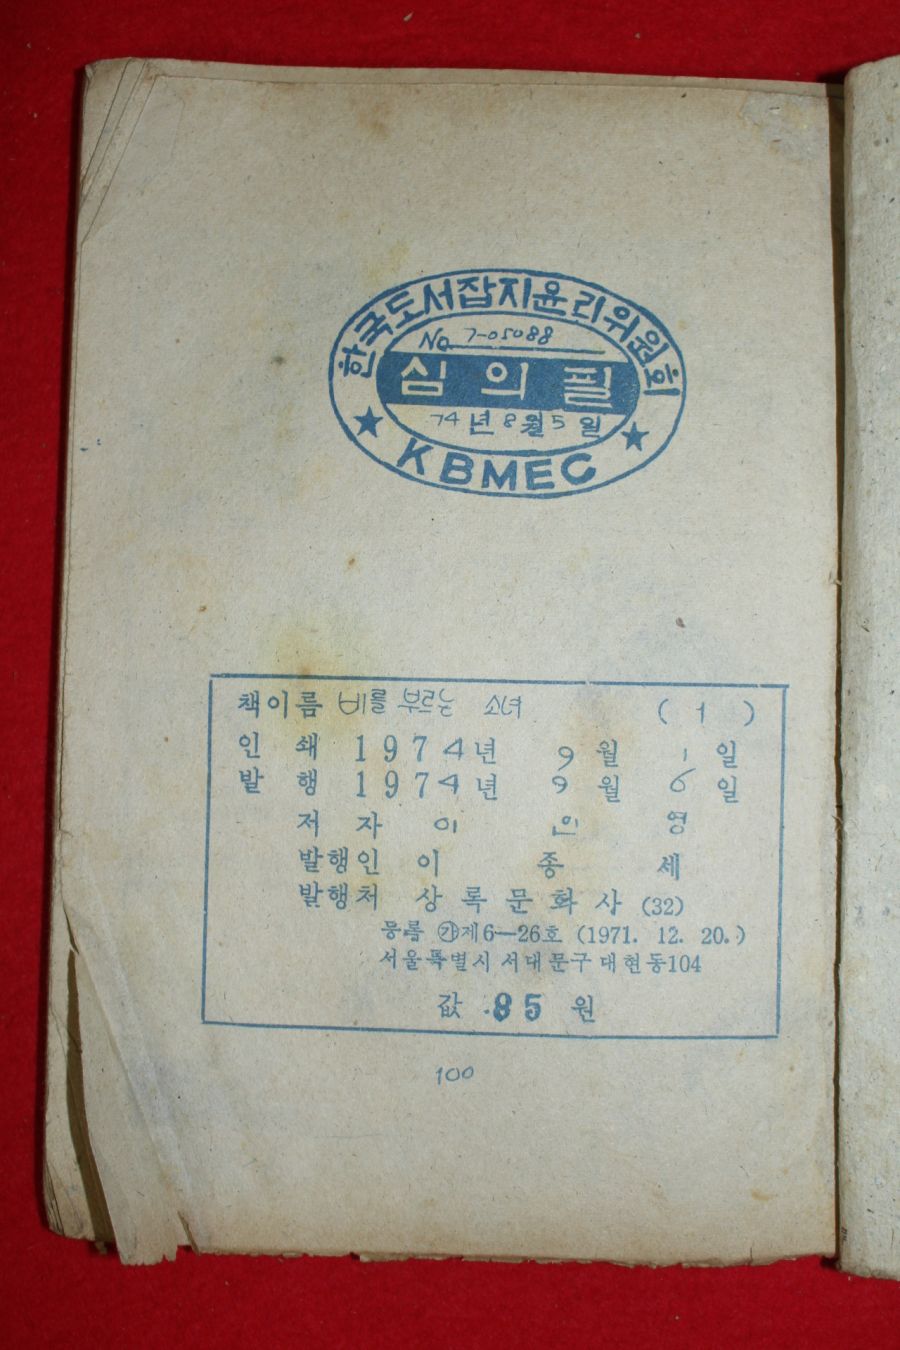 한국도서잡지윤리위원회
No. 7-05088
심의필
74년 8월 5일
KBMEC
책이름 비를 부르는 소녀 (1)
인쇄 1974년 9월 1일
발행 1974년 9월 6일
저자 이 인 영
발행인 이 종 세
발행처 상록문화사 (32)
등록 ㉮제6—26호 (1971. 12. 20.)
서울특별시 서대문구 대현동104
값 85원
100